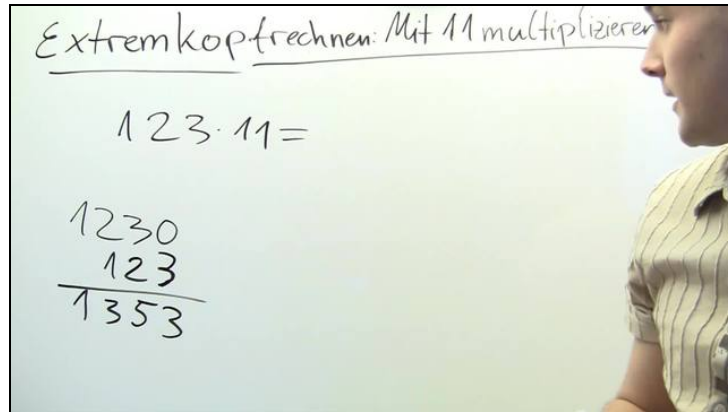 Extremkopfrechnen: Mit 11 multiplizieren
123·11=
1230
123
1353